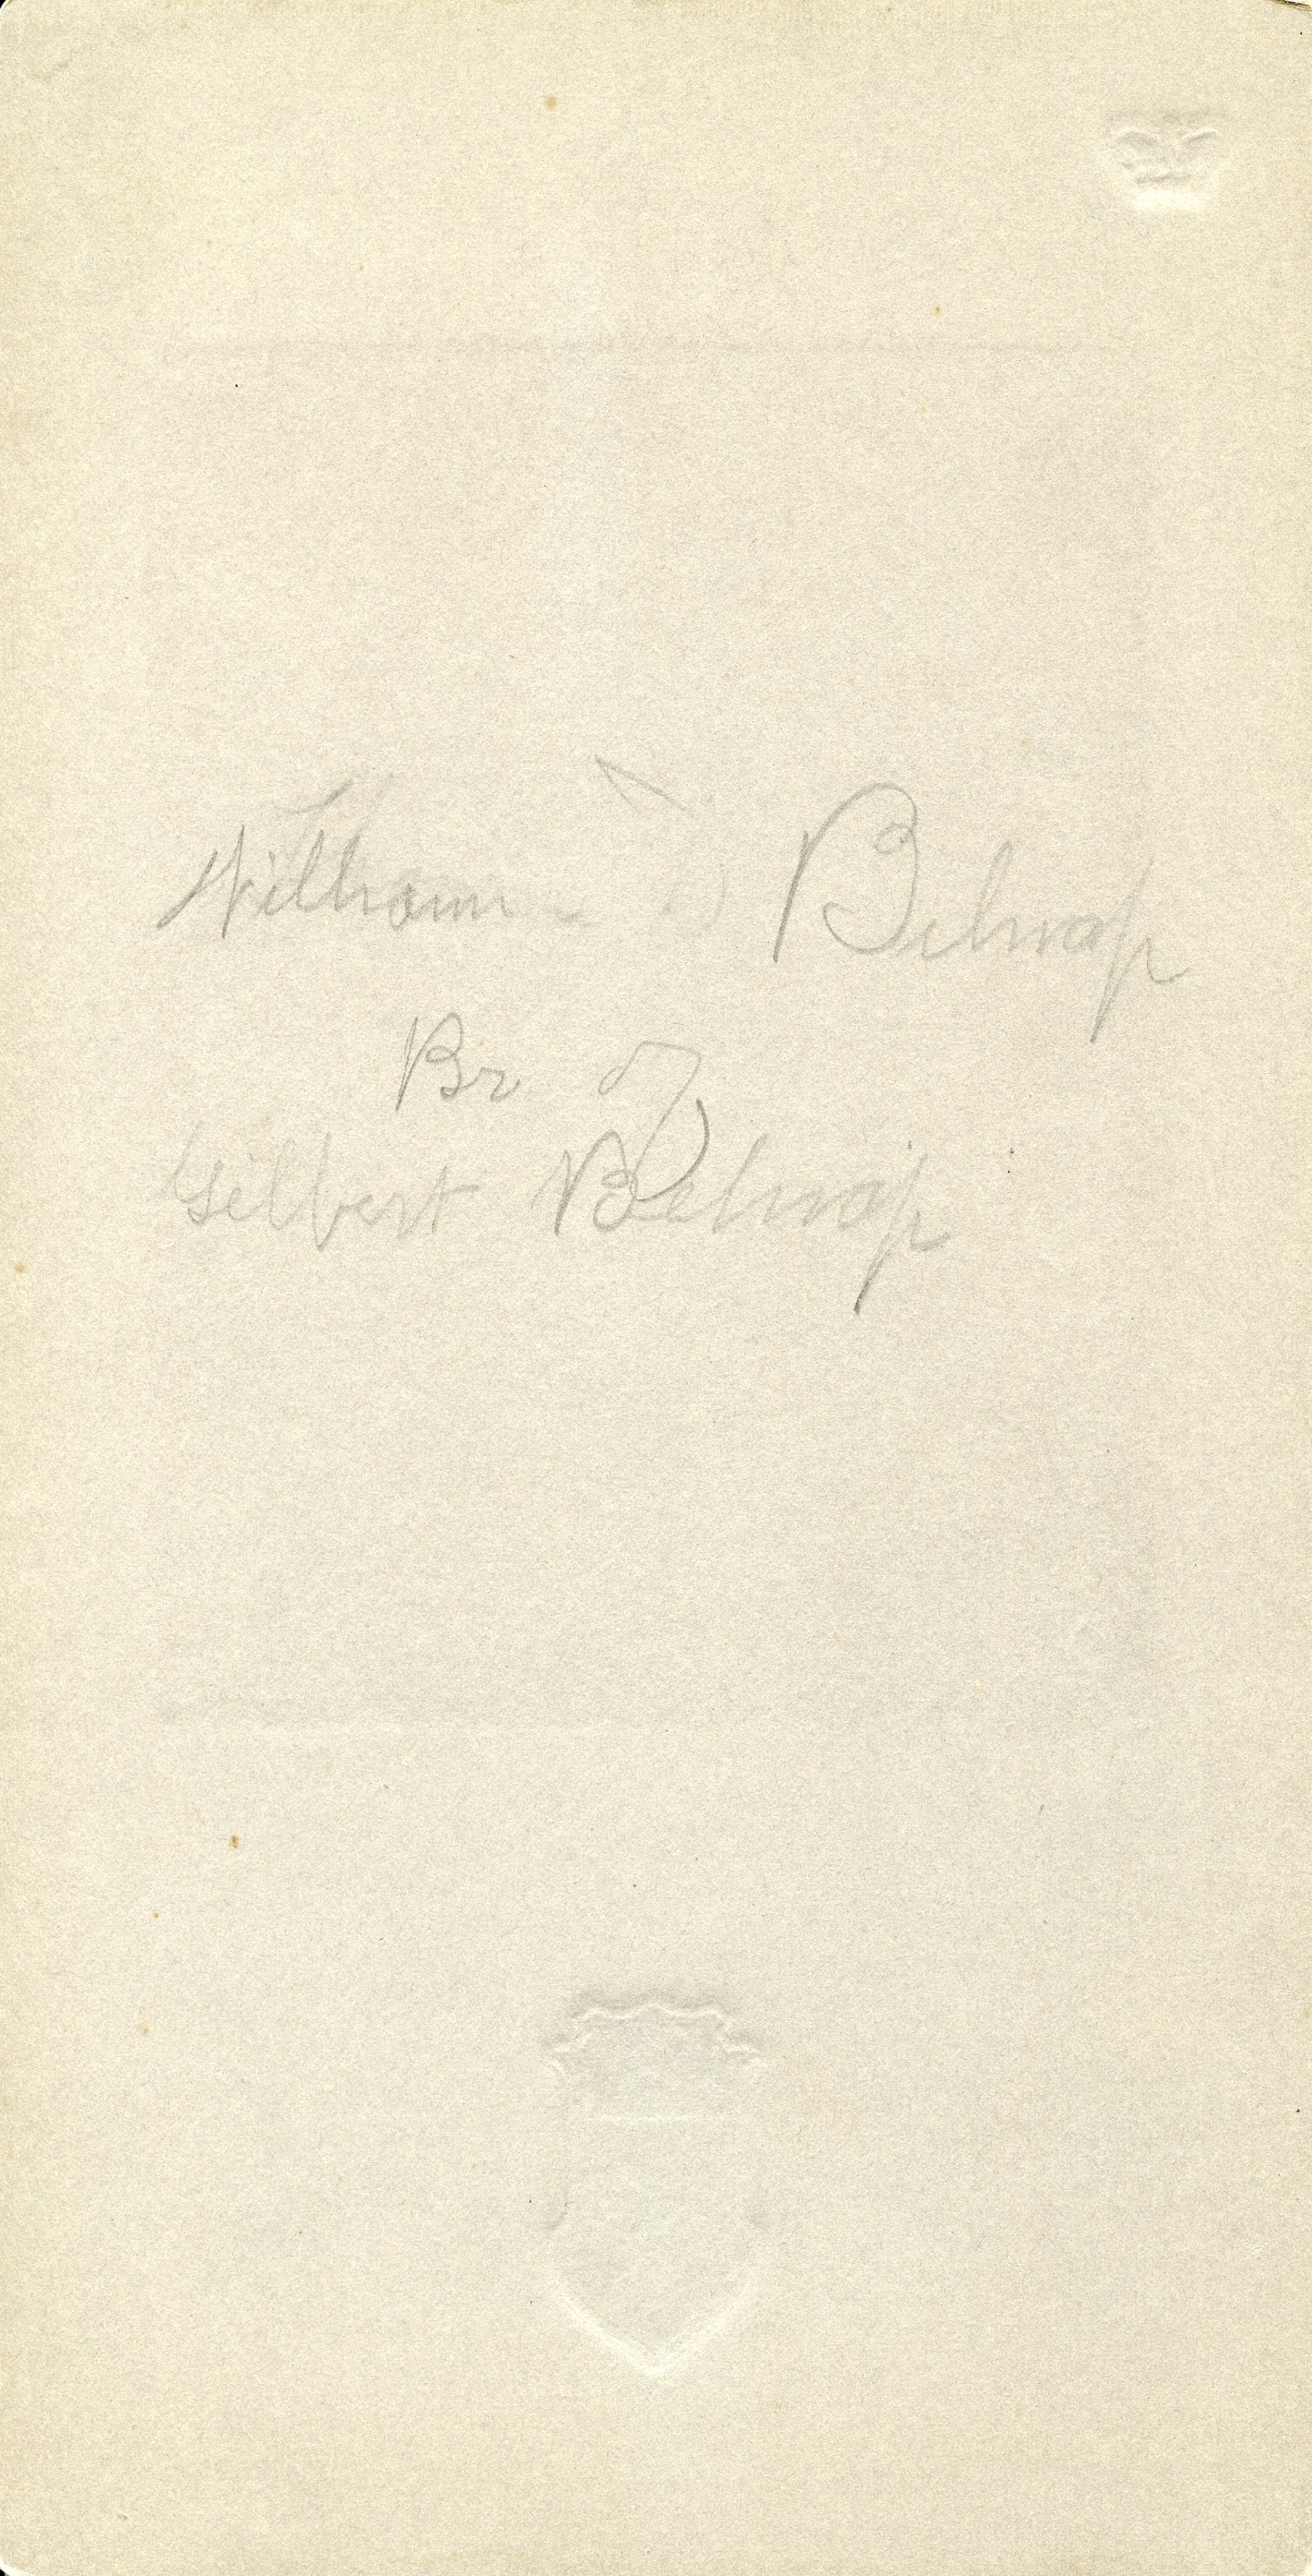 William Belnap
Br of
Gilbert Belnap